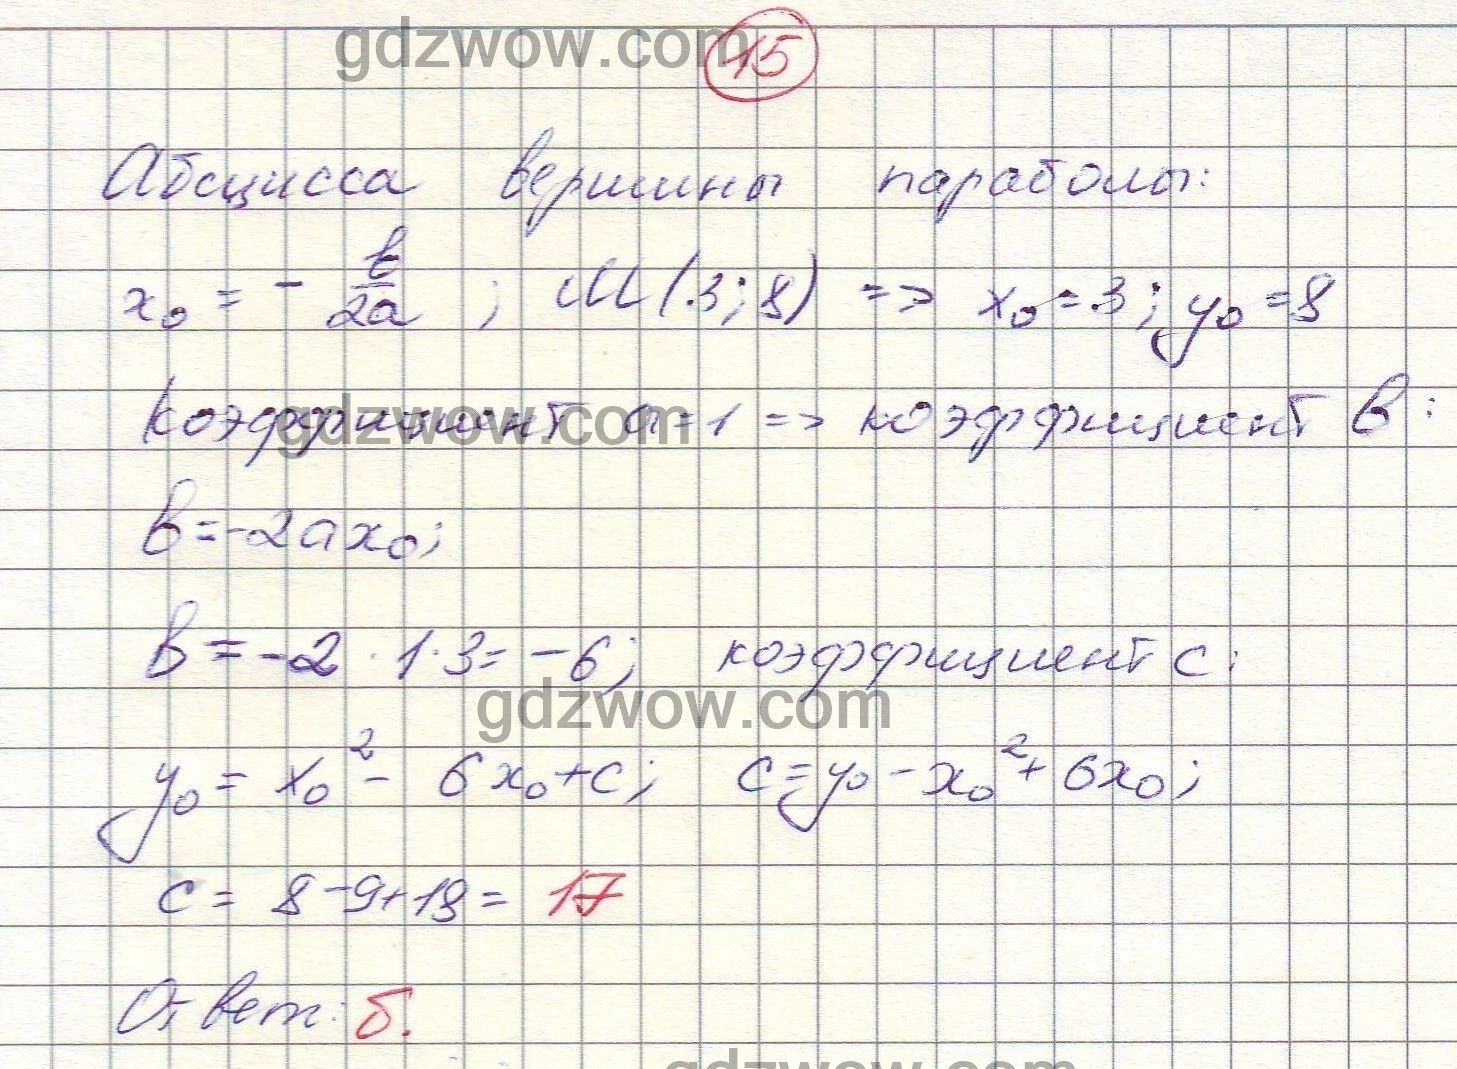 gdzwow.com
15
Абсцисса вершины параболы:
x₀ = - b/2a ; M(3;8) => x₀=3; y₀=8
коэффициент a=1 => коэффициент b:
gdzwow.com
b=-2ax₀;
b=-2·1·3=-6; коэффициент c:
gdzwow.com
y₀ = x₀² - 6x₀+c; c=y₀-x₀²+6x₀;
c= 8-9+18= 17
Ответ: б.
gdzwow.com